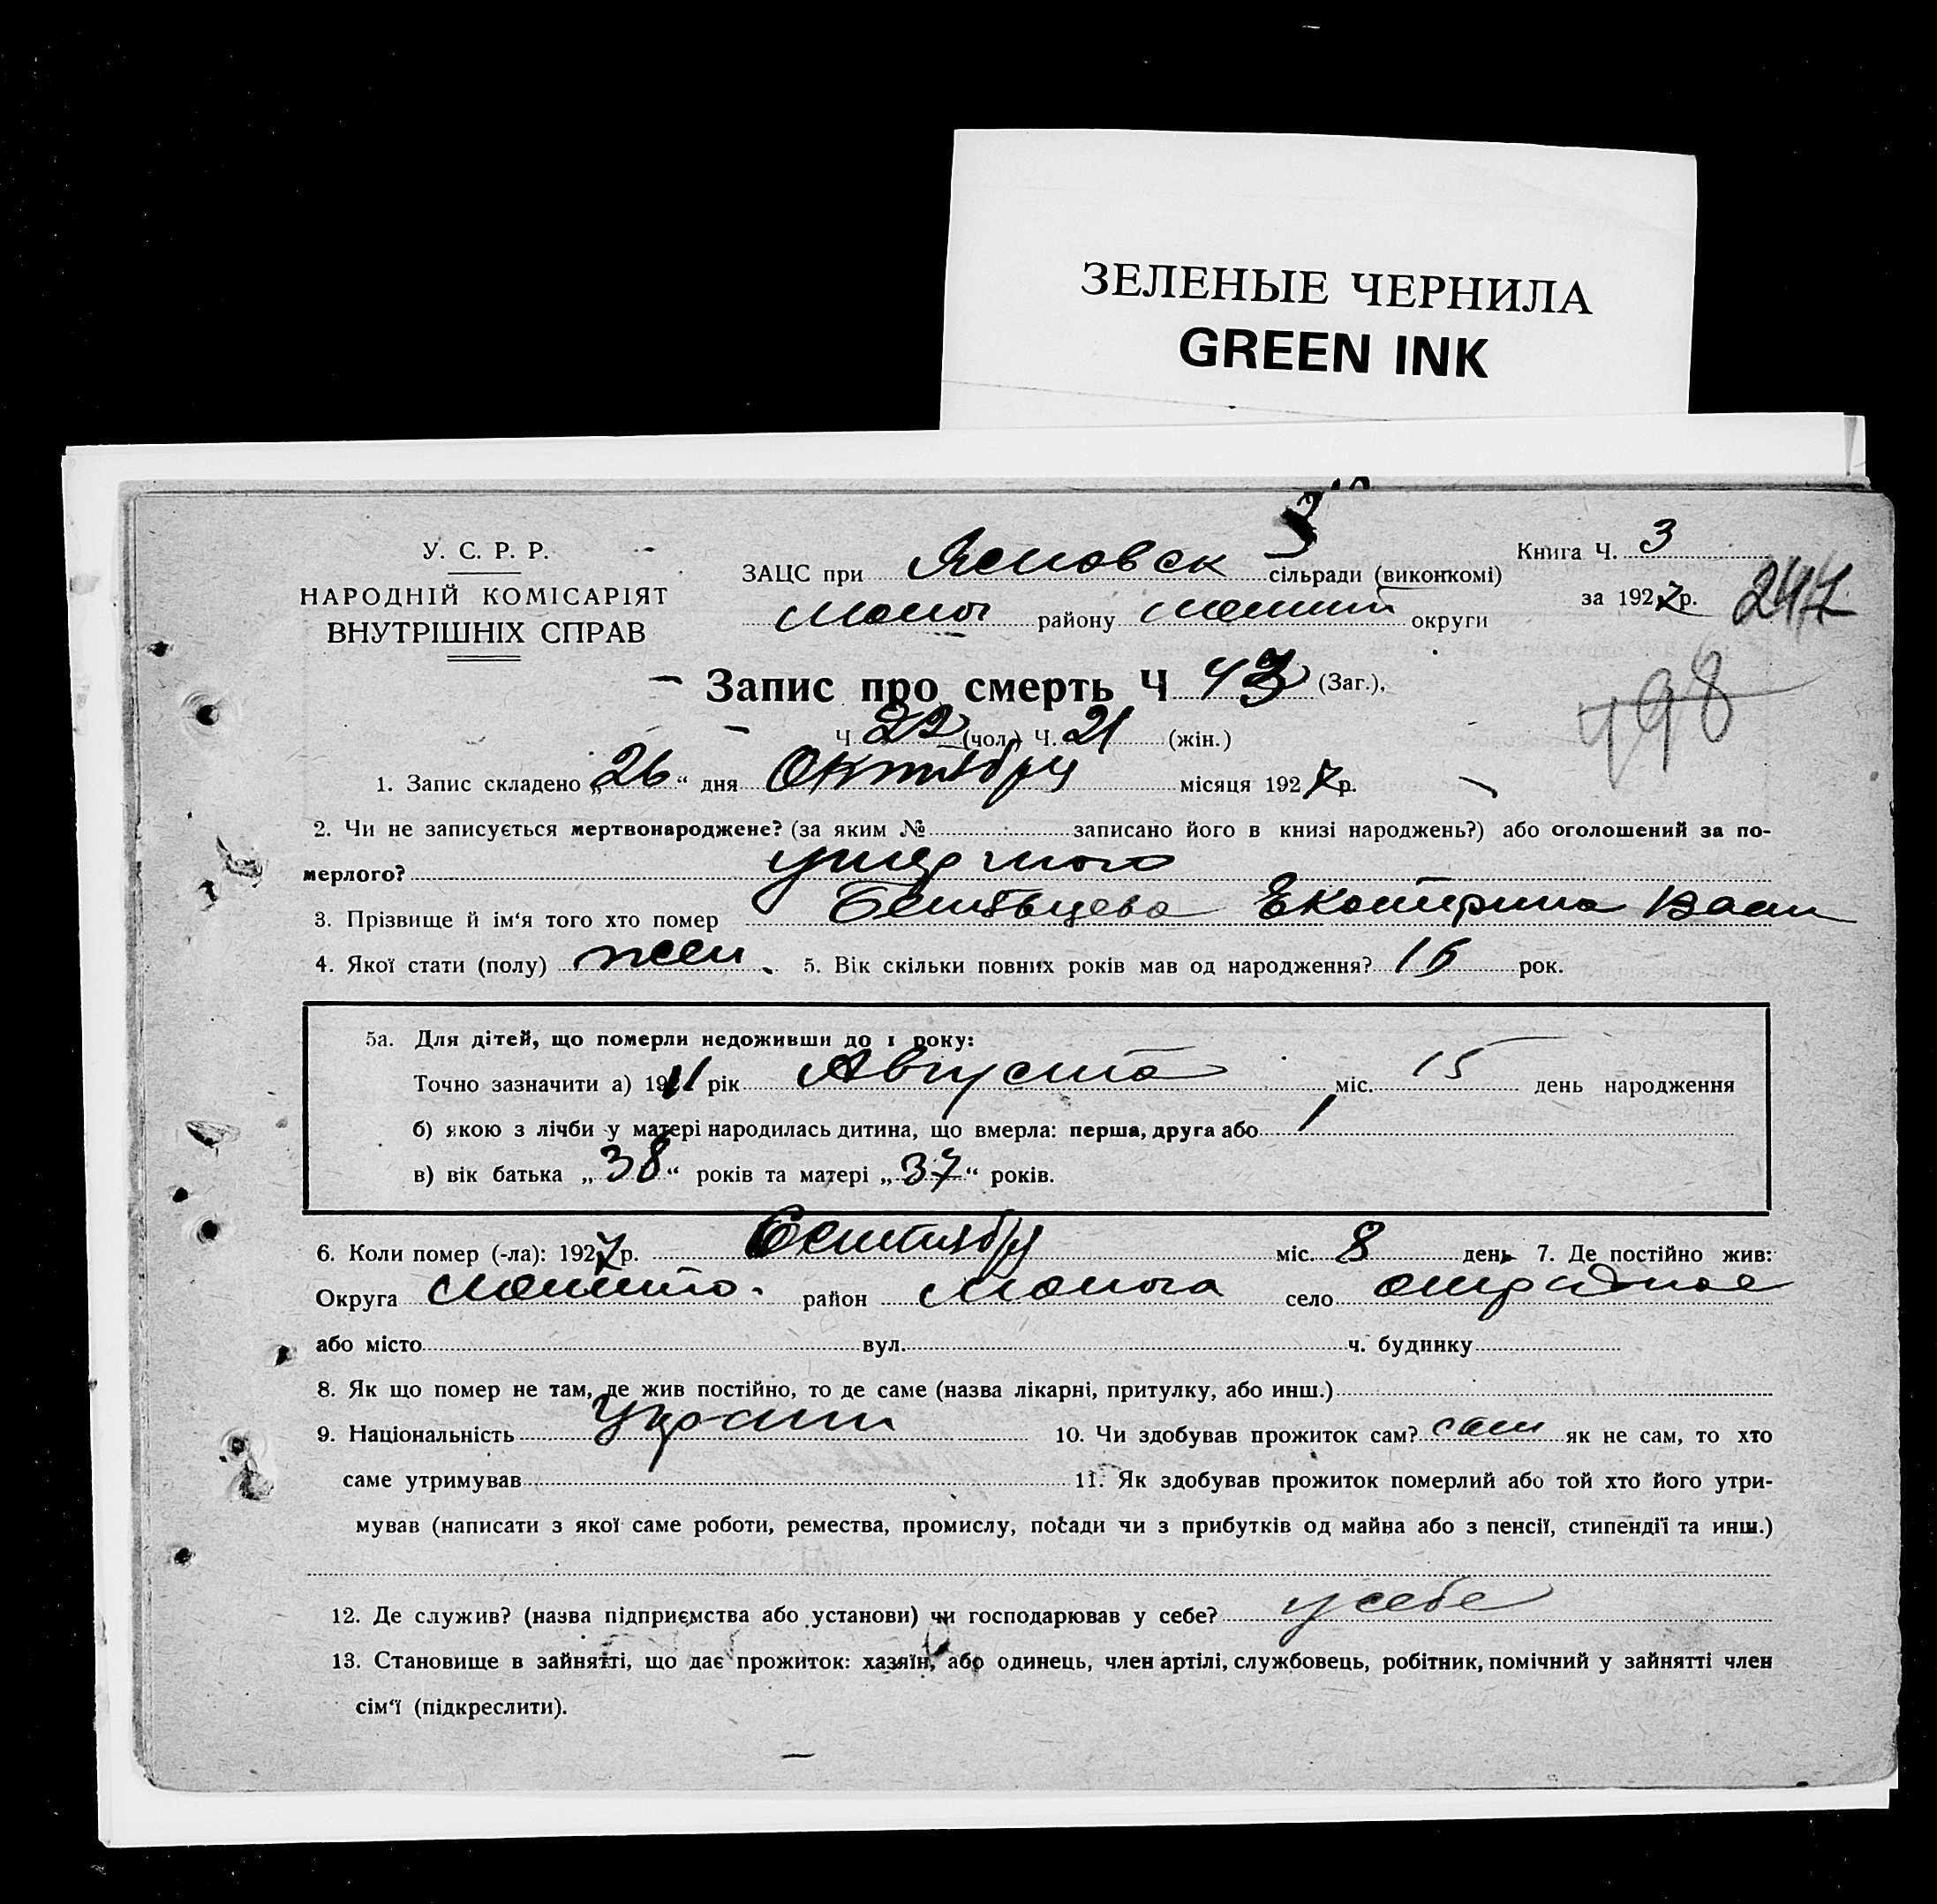 ЗЕЛЕНЫЕ ЧЕРНИЛА
GREEN INK
У. С. Р. Р.
НАРОДНІЙ КОМІСАРІЯТ
ВНУТРІШНІХ СПРАВ
ЗАЦС при Ясновск сільради (виконкомі)
району округи
Книга Ч. 3
за 1927 р.
247
498
Запис про смерть Ч 43 (Заг.),
Ч 22 (чол.) Ч. 21 (жін.)
1. Запис складено „26“ дня Октября місяця 1927 р.
2. Чи не записується мертвонароджене? (за яким № записано його в книзі народжень?) або оголошений за по-
мерлого? умерлого
3. Прізвище й ім'я того хто помер Екатерина Васил
4. Якої стати (полу) жен. 5. Вік скільки повних років мав од народження? 16 рок.
5а. Для дітей, що померли недоживши до 1 року:
Точно зазначити а) 1911 рік Августа міс. 15 день народження
б) якою з лічби у матері народилась дитина, що вмерла: перша, друга або 1
в) вік батька „38“ років та матері „37“ років.
6. Коли помер (-ла): 1927 р. Сентября міс. 8 день 7. Де постійно жив:
Округа район село отрадное
або місто вул. ч. будинку
8. Як що помер не там, де жив постійно, то де саме (назва лікарні, притулку, або инш.)
9. Національність Украин 10. Чи здобував прожиток сам? сам як не сам, то хто
саме утримував 11. Як здобував прожиток померлий або той хто його утри-
мував (написати з якої саме роботи, ремества, промислу, посади чи з прибутків од майна або з пенсії, стипендії та инш.)
12. Де служив? (назва підприємства або установи) чи господарював у себе? у себе
13. Становище в зайнятті, що дає прожиток: хазяїн, або одинець, член артілі, службовець, робітник, помічний у зайнятті член
сім'ї (підкреслити).